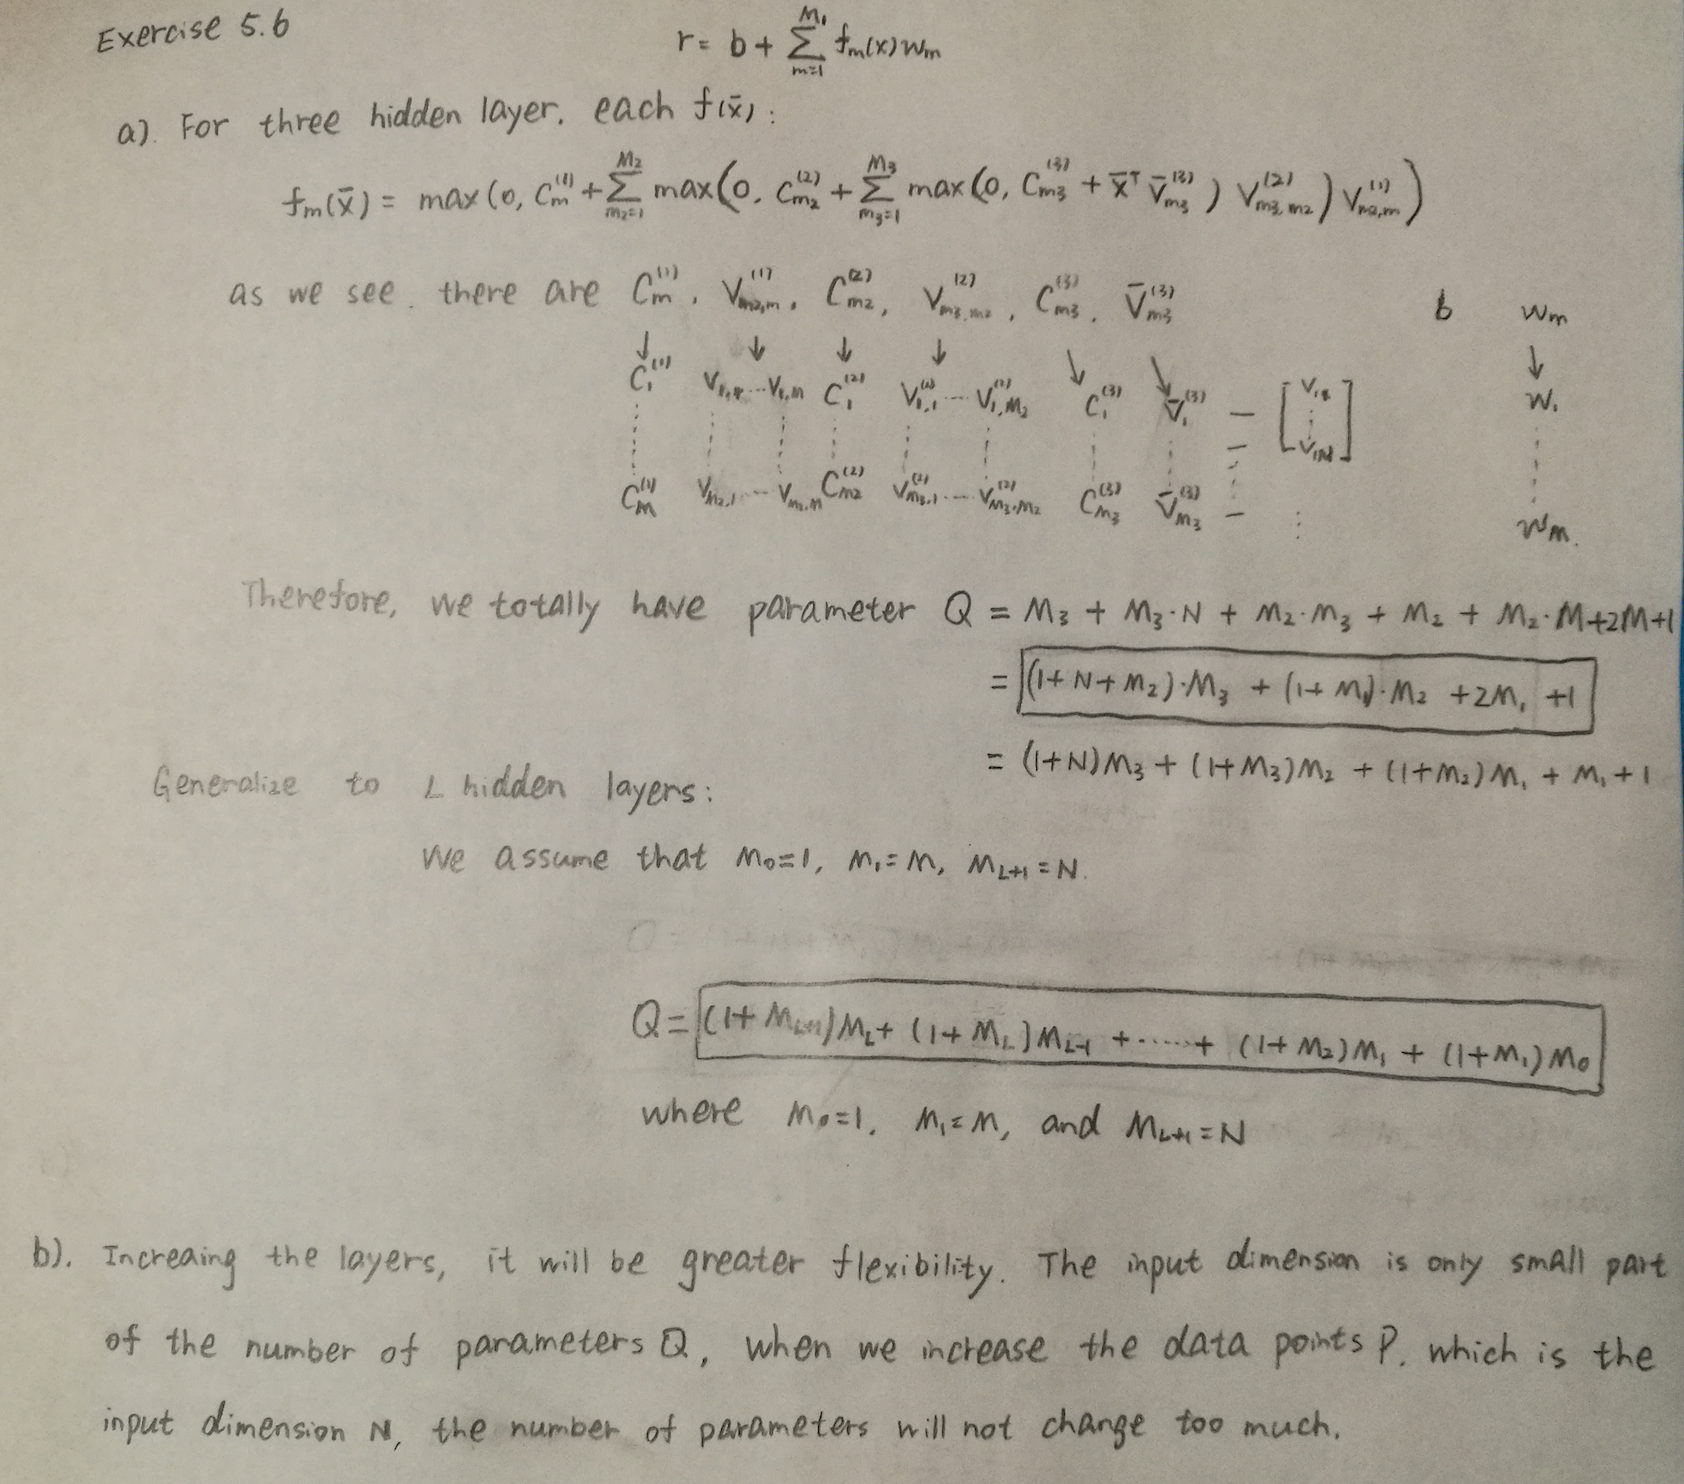 Exercise 5.6
r = b + Σ_{m=1}^{M₁} f_m(x) w_m
a). For three hidden layer, each f(x̄):
f_m(x̄) = max(0, C_m^{(1)} + Σ_{m₂=1}^{M₂} max(0, C_{m₂}^{(2)} + Σ_{m₃=1}^{M₃} max(0, C_{m₃}^{(3)} + x̄ᵀ V̄_{m₃}^{(3)}) V_{m₃,m₂}^{(2)}) V_{m₂,m}^{(1)})
as we see. there are C_m^{(1)}, V_{m₂,m}^{(1)}, C_{m₂}^{(2)}, V_{m₃,m₂}^{(2)}, C_{m₃}^{(3)}, V̄_{m₃}^{(3)} b w_m
↓ ↓ ↓ ↓ ↘ ↘ ↓
C₁^{(1)} ... V_{1,M} C₁^{(2)} V_{1,1}^{(2)} ... V_{1,M₂}^{(2)} C₁^{(3)} V̄₁^{(3)} — [ ⋮ V_{1N} ] w₁
C_M^{(1)} V_{M₂,1} ... V_{M₂,M} C_{M₂}^{(2)} V_{M₃,1}^{(2)} ... V_{M₃,M₂}^{(2)} C_{M₃}^{(3)} V̄_{M₃}^{(3)} — ⋮ w_M.
Therefore, we totally have parameter Q = M₃ + M₃·N + M₂·M₃ + M₂ + M₂·M+2M+1
= (1+N+M₂)·M₃ + (1+M₁)·M₂ +2M₁ +1
= (1+N)M₃ + (1+M₃)M₂ + (1+M₂)M₁ + M₁+1
Generalize to L hidden layers:
We assume that M₀=1, M₁=M, M_{L+1}=N.
Q = (1+M_{L+1})M_L + (1+M_L)M_{L-1} +·····+ (1+M₂)M₁ + (1+M₁)M₀
where M₀=1, M₁=M, and M_{L+1}=N
b). Increaing the layers, it will be greater flexibility. The input dimension is only small part
of the number of parameters Q, when we increase the data points P. which is the
input dimension N, the number of parameters will not change too much.